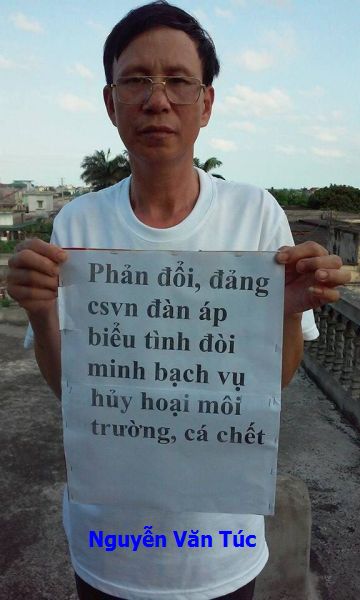 Phản đổi, đảng
csvn đàn áp
biểu tình đòi
minh bạch vụ
hủy hoại môi
trường, cá chết
Nguyễn Văn Túc